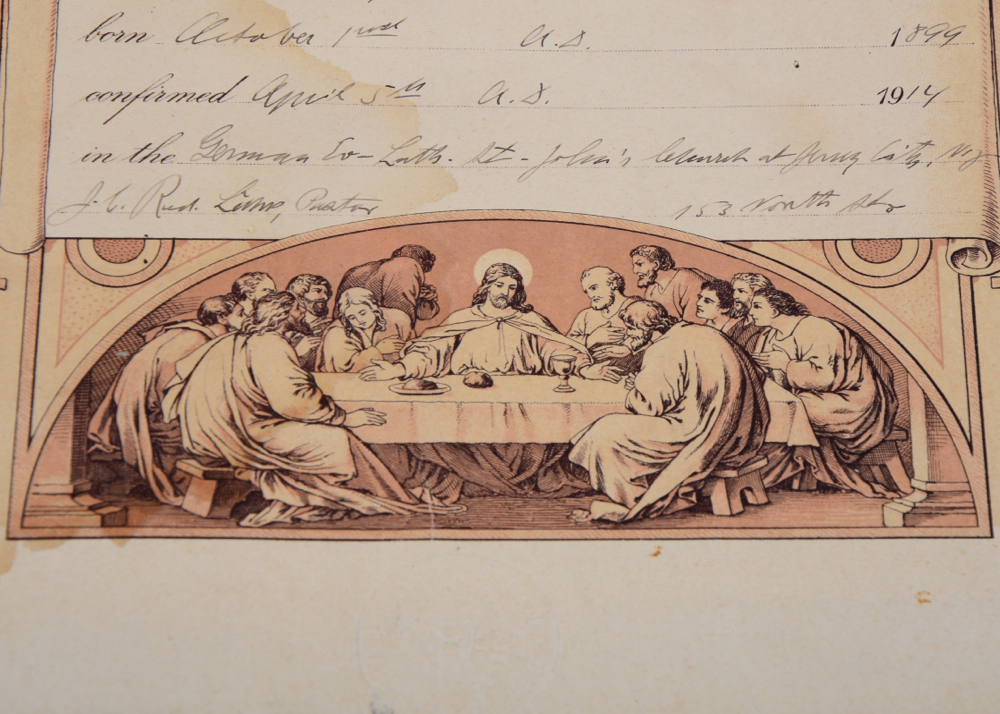 born October A.D. 1899
confirmed April 5th A.D. 1914
in the German Ev-Luth. St-John's Church at Jersey City, N.J.
J. C. Rud. Pastor 153 North Str